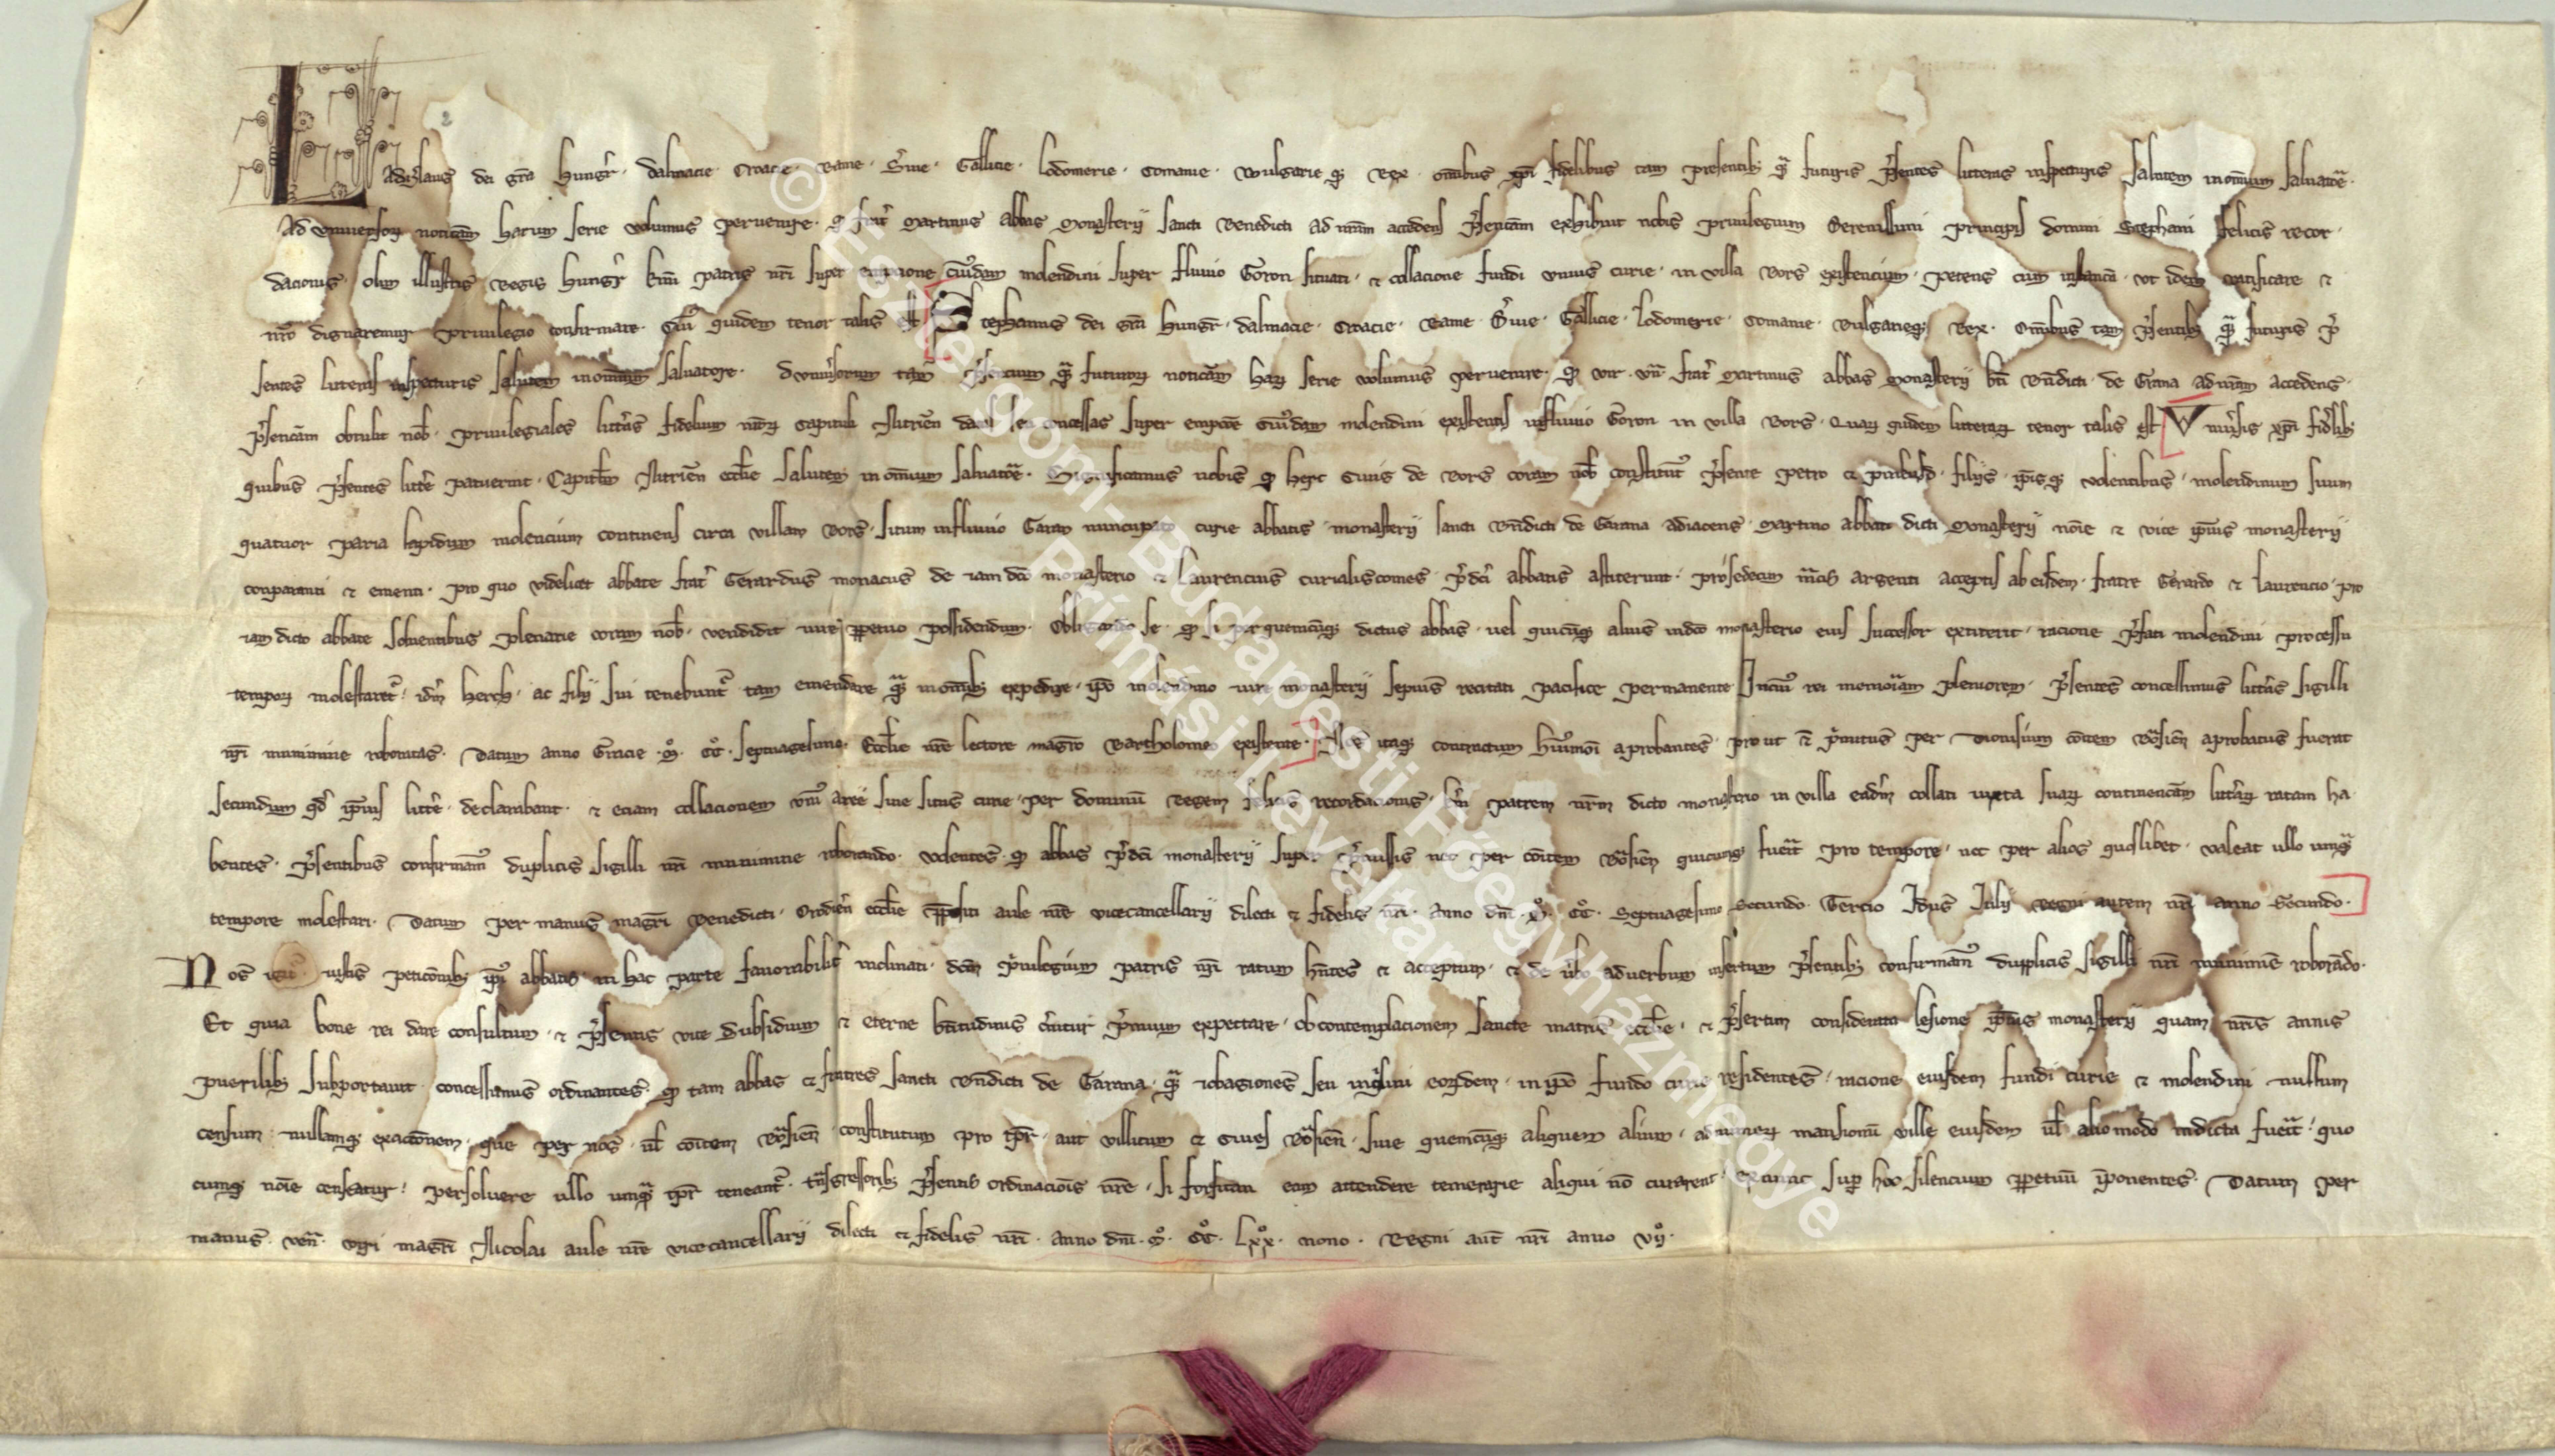 Ladizlaus dei gra Hungr̄ · Dalmacie · Croacie · Rame · S̄uie · Gallicie · Lodomerie · Comanie · Wulgarie q̧ Rex · om̄ibus xp̄i fidelibus tam presentib; q̄ futuris p̄sentes litteras inspecturis salutem in om̄ium saluatōe ·
Ad vniuersoꝝ noticiam harum serie volumus peruenire · ꝙ frat̄ Martinus abbas Monasterij sancti Benedicti ad nr̄am accedens p̄senciam exhibuit nobis priuilegium Serenissimi principis domini Stephani felicis recor ·
dacionis · olim illustris Regis Hungr̄ kr̄mi patris nr̄i super empcione cuiusdam molendini super fluuio Goron situati · et collacione fundi vnius curie · in villa Bors existencium · petens cum instancia · vt idem ratificare et
nr̄o dignaremur priuilegio confirmare · Cuī quidem tenor talis est Stephanus dei gr̄a Hungr̄ · Dalmacie · Croacie · Rame · S̄uie · Gallicie · Lodomerie · Comanie · Bulgarieq; Rex · Om̄ibus tam p̄sentib; q̄ futuris p̄
sentes litteras inspecturis salutem in om̄ium saluatore · d vniūsorum tam p̄sencium q̄ futuroꝝ noticiam haꝝ serie volumus peruenire · ꝙ vir · vn̄ · frat̄ Martinus abbas Monasterij bt̄i Bn̄dicti · de Grana ad nr̄am accedens ·
p̄senciam obtulit nob̄ · priuilegiales litt̄as fidelium nr̄oꝝ Capituli Nitrien̄ datas seu concessas super empcōe cui̅dam molendini existentis in fluuio Goron in villa Bors · Quaꝝ quidem litteraꝝ tenor talis est Vniu̅sis xp̄i fid̄lib;
quibus p̄sentes litt̄e patuerint · Capitl̄m Nitrien̄ eccl̄ie salutem in om̄ium saluatōe · Significamus uobis ꝙ Herc ciuis de Bors coram nob̄ constitut̄ p̄sente Petro et filijs · ip̄isq; volentibus · molendinum suum
quatuor paria lapidum molencium continens circa villam Bors · situm in fluuio Garan nuncupato curie abbatis · monasterij sancti Bn̄dicti de Garana adiacens · Martino abbati dicti Monasterij no̅ie et vice ip̄ius monasterij
conparanti et ementi · pro quo videlicet abbate frat̄ Gerardus monacus de iam dc̄o monasterio et Laurencius curialiscomes · p̄dc̄i abbatis astiterunt · pro sedecim mr̄cis argenti acceptis ab eisdem · fratre Gerardo et Laurencio · pro
iam dicto abbate soluentibus plenarie coram nob̄ · vendidit iure ꝑpetuo possidendum · Obligando se · ꝙ si per quemcūq; dictus abbas · uel quicūq; alius in dc̄o monasterio eius successor extiterit · racione p̄fati molendini processu
tempoꝝ molestaret̄ · id̄m Herch · ac filij sui tenebunt̄ · tam emendare q̄ in om̄ib; expedire · ip̄o molendino iure monasterij sepius recitati pacifice permanente · In cui̅ rei memoriam pleniorem · p̄sentes concessimus litt̄as sigilli
nr̄i munimine roboratas · Datum anno Gracie · M̊ · CC̊ · septuagesimo · Eccl̄ie nr̄e lectore magr̄o Bartholomeo existente · Nos itaq; contractum hui̅moi aprobantes · pro ut et p̄mitus per Dionisium co̅item Bo̅sien̄ aprobatus fuerat
secundum qd̄ ip̄ius litt̄e · declarabant · et eciam collacionem vni̅ aree siue situs curie · per dominū Regem felicis recordacionis · kr̄m patrem nr̄m dicto monasterio in villa ead̄m collati iuxta suaꝝ continenciam litt̄aꝝ ratam ha ·
bentes · p̄sentibus confirmam̄ duplicis sigilli nr̄i munimine roborando · Volentes · ꝙ abbas p̄dc̄i monasterij super p̄missis nec per co̅item Bo̅sien̄ quicunq; fuerit pro tempore · nec per alios quoslibet · valeat ullo umq̄
tempore molestari · Datum per manus magr̄i Benedicti · Orodien̄ eccl̄ie p̄positi aule nr̄e vicecancellarij dilecti et fidelis nr̄i · Anno dn̄i · M̊ · CC̊ · Septuagesimo Secundo · Tercio Idus Julij Regni autem nr̄i anno Secundo ·
Nos iustis peticōnib; ip̄i̅ abbatis in hac parte fauorabilit̄ inclinati · dc̄m p̄uilegium patris nr̄i ratum hn̄tes et acceptum · et de ūbo ad uerbum insertum p̄sentib; confirmam̄ duplicis sigilli nr̄i munimine roborādo ·
Et quia bone rei dare consultum · et p̄sentis vite subsidium et eterne bt̄itudinis c̄nitur p̄mium expectare · ob contemplacionem sancte matris eccl̄ie · et p̄sertim considerata lesione ip̄ius monasterij quam nr̄is annis
puerilib; subportauit · concessimus ordinantes · ꝙ tam abbas et fratres sancti Bn̄dicti de Garana · q̄ iobagiones seu inq̄lini eoꝝdem · in ip̄o fundo curie residentes · racione eiusdem fundi curie et molendini nullum
censum · nullamq; exactōnem · que per nos · ul̄ co̅item Bo̅sien̄ constitutum pro tp̄r · aut villicum et ciues Bo̅sien̄ · siue quemcūq; aliquem alium · ad numeꝝ mansionū ville eiusdem ul̄ alio modo indicta fuerit · quo
cumq; no̅ie censeatur · persoluere ullo umq̄ tp̄r teneant̄ · tn̄sgressorib; p̄sentis ordinaciōis nr̄e · si forsitan eam attendere temerarie aliqui nō curarent · ex tunc suꝑ hoc silencium ꝑpetuū īponentes · Datum per
manus · ven̄ · viri magr̄i Nicolai aule nr̄e vicecancellarij dilecti et fidelis nr̄i · anno dn̄i · M̊ · CC̊ · Lxx̊ · nono · Regni aut̄ nr̄i anno vij̊ ·
© Esztergom-Budapesti Főegyházmegye
Prímási Levéltár